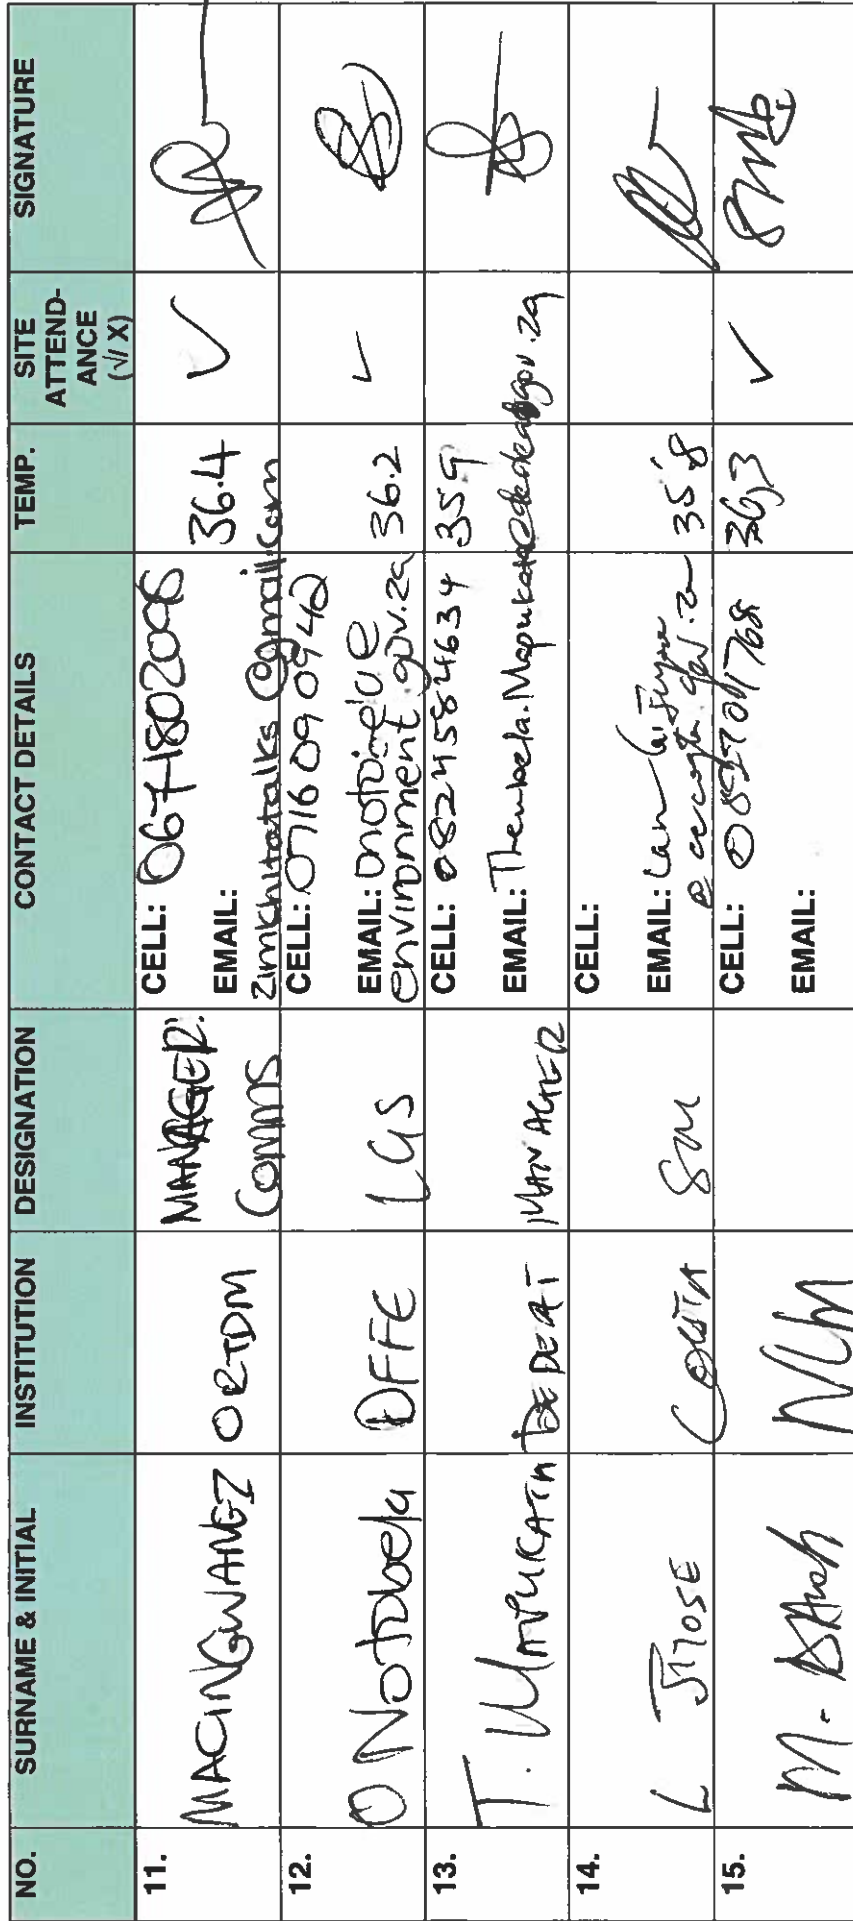 NO. SURNAME & INITIAL INSTITUTION DESIGNATION CONTACT DETAILS TEMP. SITE ATTEND-ANCE (√/ X) SIGNATURE
11. MACINGWANE Z ORTDM MANAGER: COMMS CELL: 0671802098 36.4 ✓
EMAIL: zimkhitatalks@gmail.com
12. O Notobela DFFE LGS CELL: 0716090942 36.2 ✓
EMAIL: onotobela@environment.gov.za
13. T. MAPUKATA DEDEAT MANAGER CELL: 0824584634 359
EMAIL: Thembela.Mapukata@dedeat.gov.za
14. L JIJOSE COGTA SM CELL: 35.8
EMAIL:
15. M. NLM CELL: 36,3 ✓
EMAIL: